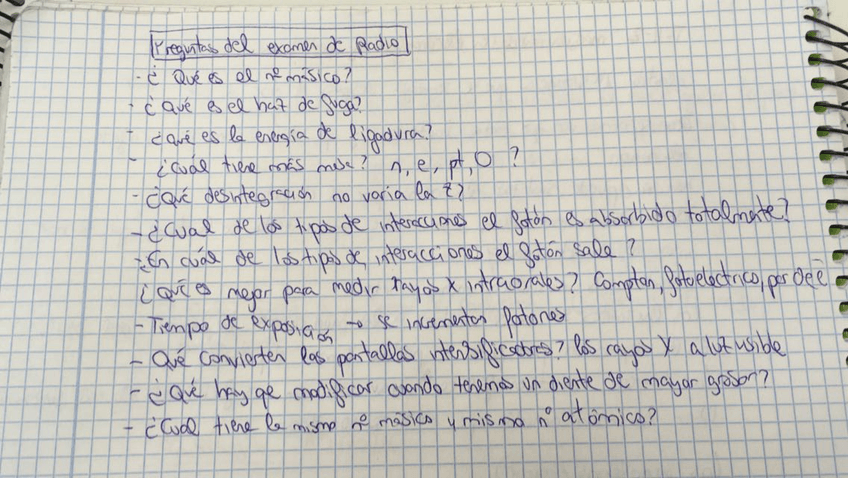 Preguntas del examen de Radio
- ¿Qué es el nº másico?
- ¿Qué es el haz de fuga?
- ¿Qué es la energía de ligadura?
- ¿Cuál tiene más masa? n, e, pt, O ?
- ¿Qué desintegración no varia la Z?
- ¿Cual de los tipos de interacciones el fotón es absorbido totalmente?
¿En cuál de los tipos de interacciones el fotón sale?
¿Qué es mejor para medir rayos X intraorales? Compton, fotoelectrico, por de e⁻e
- Tiempo de exposición → se incrementan fotones
- Qué convierten las pantallas intensificadores? los rayos X a luz visible
- ¿Qué hay qe modificar cuando tenemos un diente de mayor grosor?
- ¿Cual tiene la mismo nº másico y mismo nº atómico?